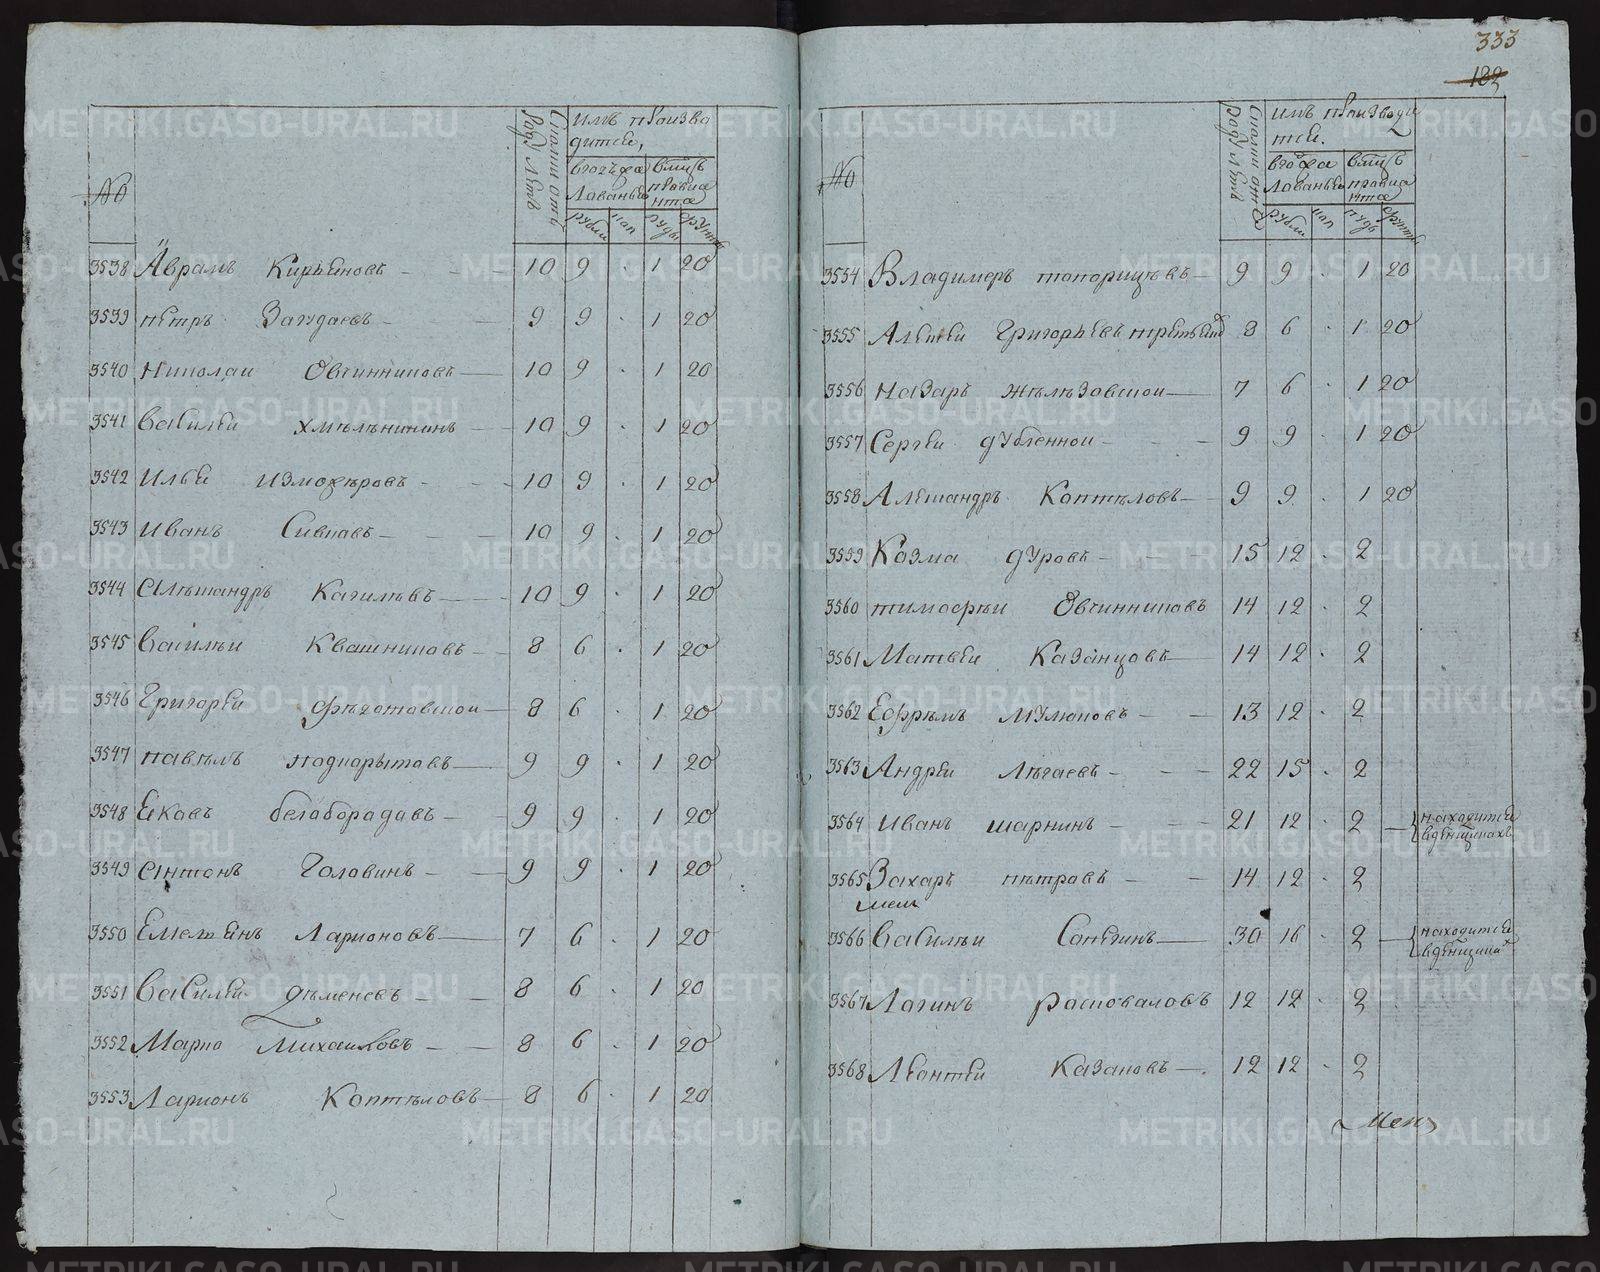 333
182
№
Сколко отъ роду летъ
имъ произво
дитси,
вгодъ жа
лованья
вмцъ
правиа
нта
рубли
коп
пуды
фунты
3538 Аврамъ Кирьяновъ 10 9 . 1 20
3539 петръ Загудаевъ 9 9 . 1 20
3540 Николаи Овчинниковъ 10 9 . 1 20
3541 Василеи хмѣлѣнинъ 10 9 . 1 20
3542 Илья измоѳѣровъ 10 9 . 1 20
3543 Иванъ Сивковъ 10 9 . 1 20
3544 Алѣшандръ Кагилѣвъ 10 9 . 1 20
3545 Василѣи Квашниповъ 8 6 . 1 20
3546 Григореи фѣготовскои 8 6 . 1 20
3547 павѣлъ подкорытовъ 9 9 . 1 20
3548 Ековъ белобородовъ 9 9 . 1 20
3549 Антонъ Головинъ 9 9 . 1 20
3550 Емельянъ Ларионовъ 7 6 . 1 20
3551 Василеи дѣменевъ 8 6 . 1 20
3552 Марко Михаиловъ 8 6 . 1 20
3553 Ларионъ Коптѣловъ 8 6 . 1 20
№
Сколко отъ роду летъ
имъ производи
тси.
вгодъ жа
лованья
вмцъ
правиа
нта
рубли
коп
пудъ
фунты
3554 Владимеръ топорищевъ 9 9 . 1 20
3555 Алексеи Григорьевъ третьеи 8 6 . 1 20
3556 назаръ жѣлѣзовскои 7 6 . 1 20
3557 Сергеи дубленнои 9 9 . 1 20
3558 Алешандръ Коптѣловъ 9 9 . 1 20
3559 Козма дуровъ 15 12 . 2
3560 тимофѣи Овчинниковъ 14 12 . 2
3561 Матвеи Казанцовъ 14 12 . 2
3562 Ефрѣмъ мумоновъ 13 12 . 2
3563 Андреи Лѣгаевъ 22 15 . 2
3564 Иванъ шарнинъ 21 12 . 2 находится
вденщикахъ
3565 Захаръ пѣтровъ 14 12 . 2
3566 Василѣи Сонегинъ 30 16 . 2 находится
вденщика
3567 Логинъ расповаловъ 12 12 . 2
3568 Леонтеи казаковъ 12 12 . 2
METRIKI.GASO-URAL.RU